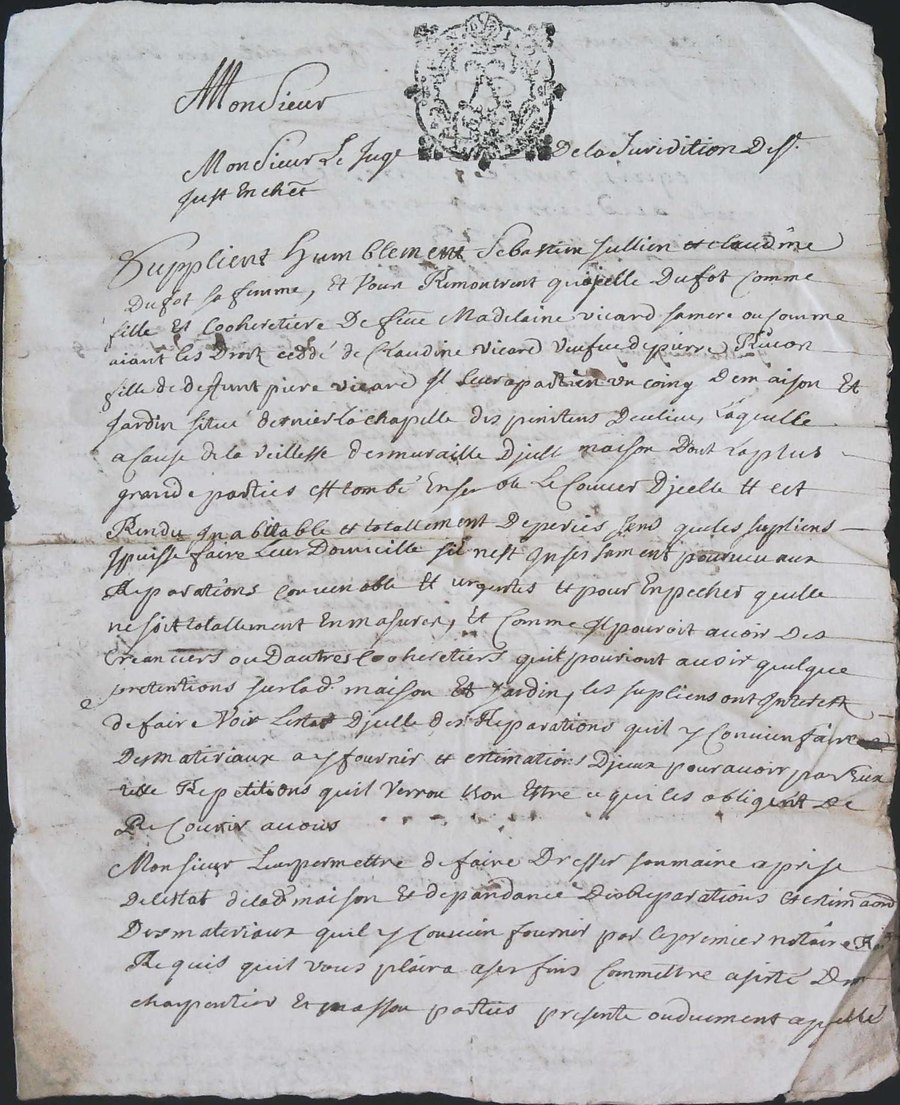 Monsieur
Monsieur Le Juge De la Juridition De st
Just En chet
Supplient humblement Sebastien Jullien et claudine
Dufot sa femme, et Vous Remontrent quicelle Dufot Comme
fille Et Cooheretiere De feue Madelaine vicard sa mere ou comme
aiant les Droit cedde de Claudine vicard veufve de pierre
fille de deffunt piere vicard Il leur apartien un coing De maison Et
Jardin situé dernier la chapelle des penitens Du lieu, Laquelle
a Cause de la veillesse des muraille D'jcelle maison Dont la plus
grande parties est tombé Le Couver D'jcelle Et est
Rendu Inabitable et totallement Deperies sens que les suppliens
puisse faire Leur Domicille sil nest Insesament pourveu aux
Reparations Convenable et urgentes et pour Enpecher quelle
ne soit totallement En masures, Et Comme Il pouroit avoir Des
Creanciers ou D'autres Cooheretiers quil pouriont avoir quelque
pretentions sur lad. maison Et Jardin, les supliens ont Interest
de faire Voir Lestat D'jcelle des Reparations quil y Convien faire
Des materiaux a y fournir et estimations D'jceux pour avoir par Eux
telle Repetitions quil Verron bon Estre ce qui les obligent De
Recourir a vous
Monsieur Leur permettre de faire Dresser sommaire aprise
De lestat de lad. maison Et dependance Des Reparations Et
Des materiaux quil y Convien fournir par le premier notaire
Requis quil vous plaira a ses fins Commettre asisté D'un
charpentier Et masson parties presente ou duement appellé